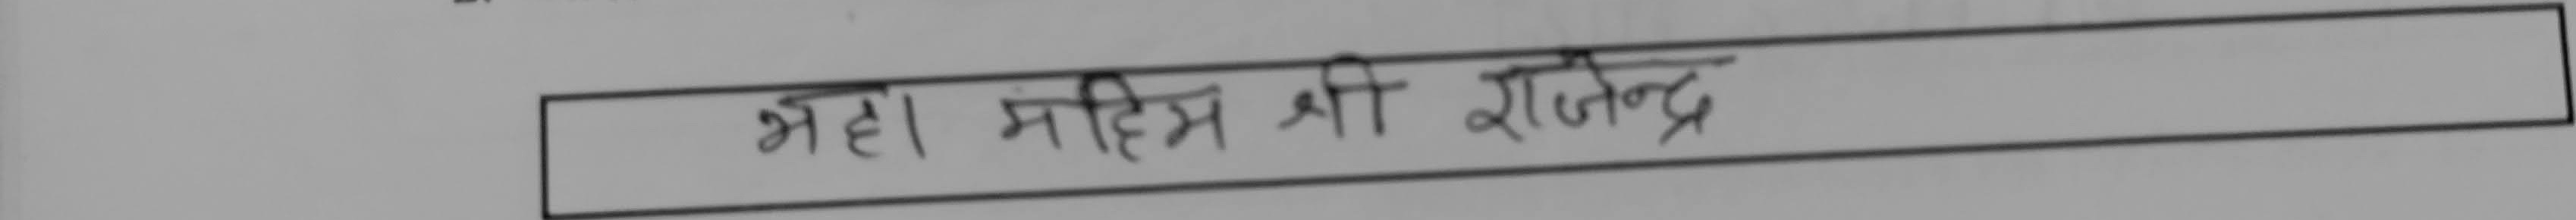 महा महिम श्री राजेन्द्र